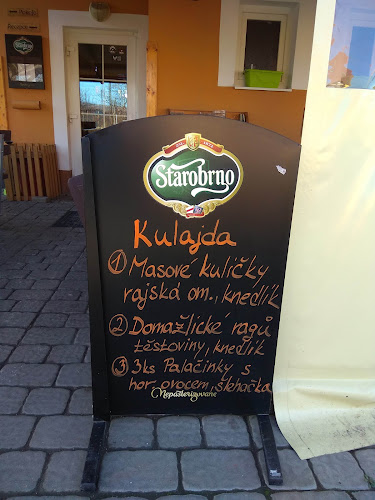 Starobrno
Kulajda
1 Masové kuličky
rajská om., knedlík
2 Domažlické ragů
těstoviny, knedlík
3 3ks Palačinky s
hor. ovocem, šlehačka
Nepasterizované
Starobrno